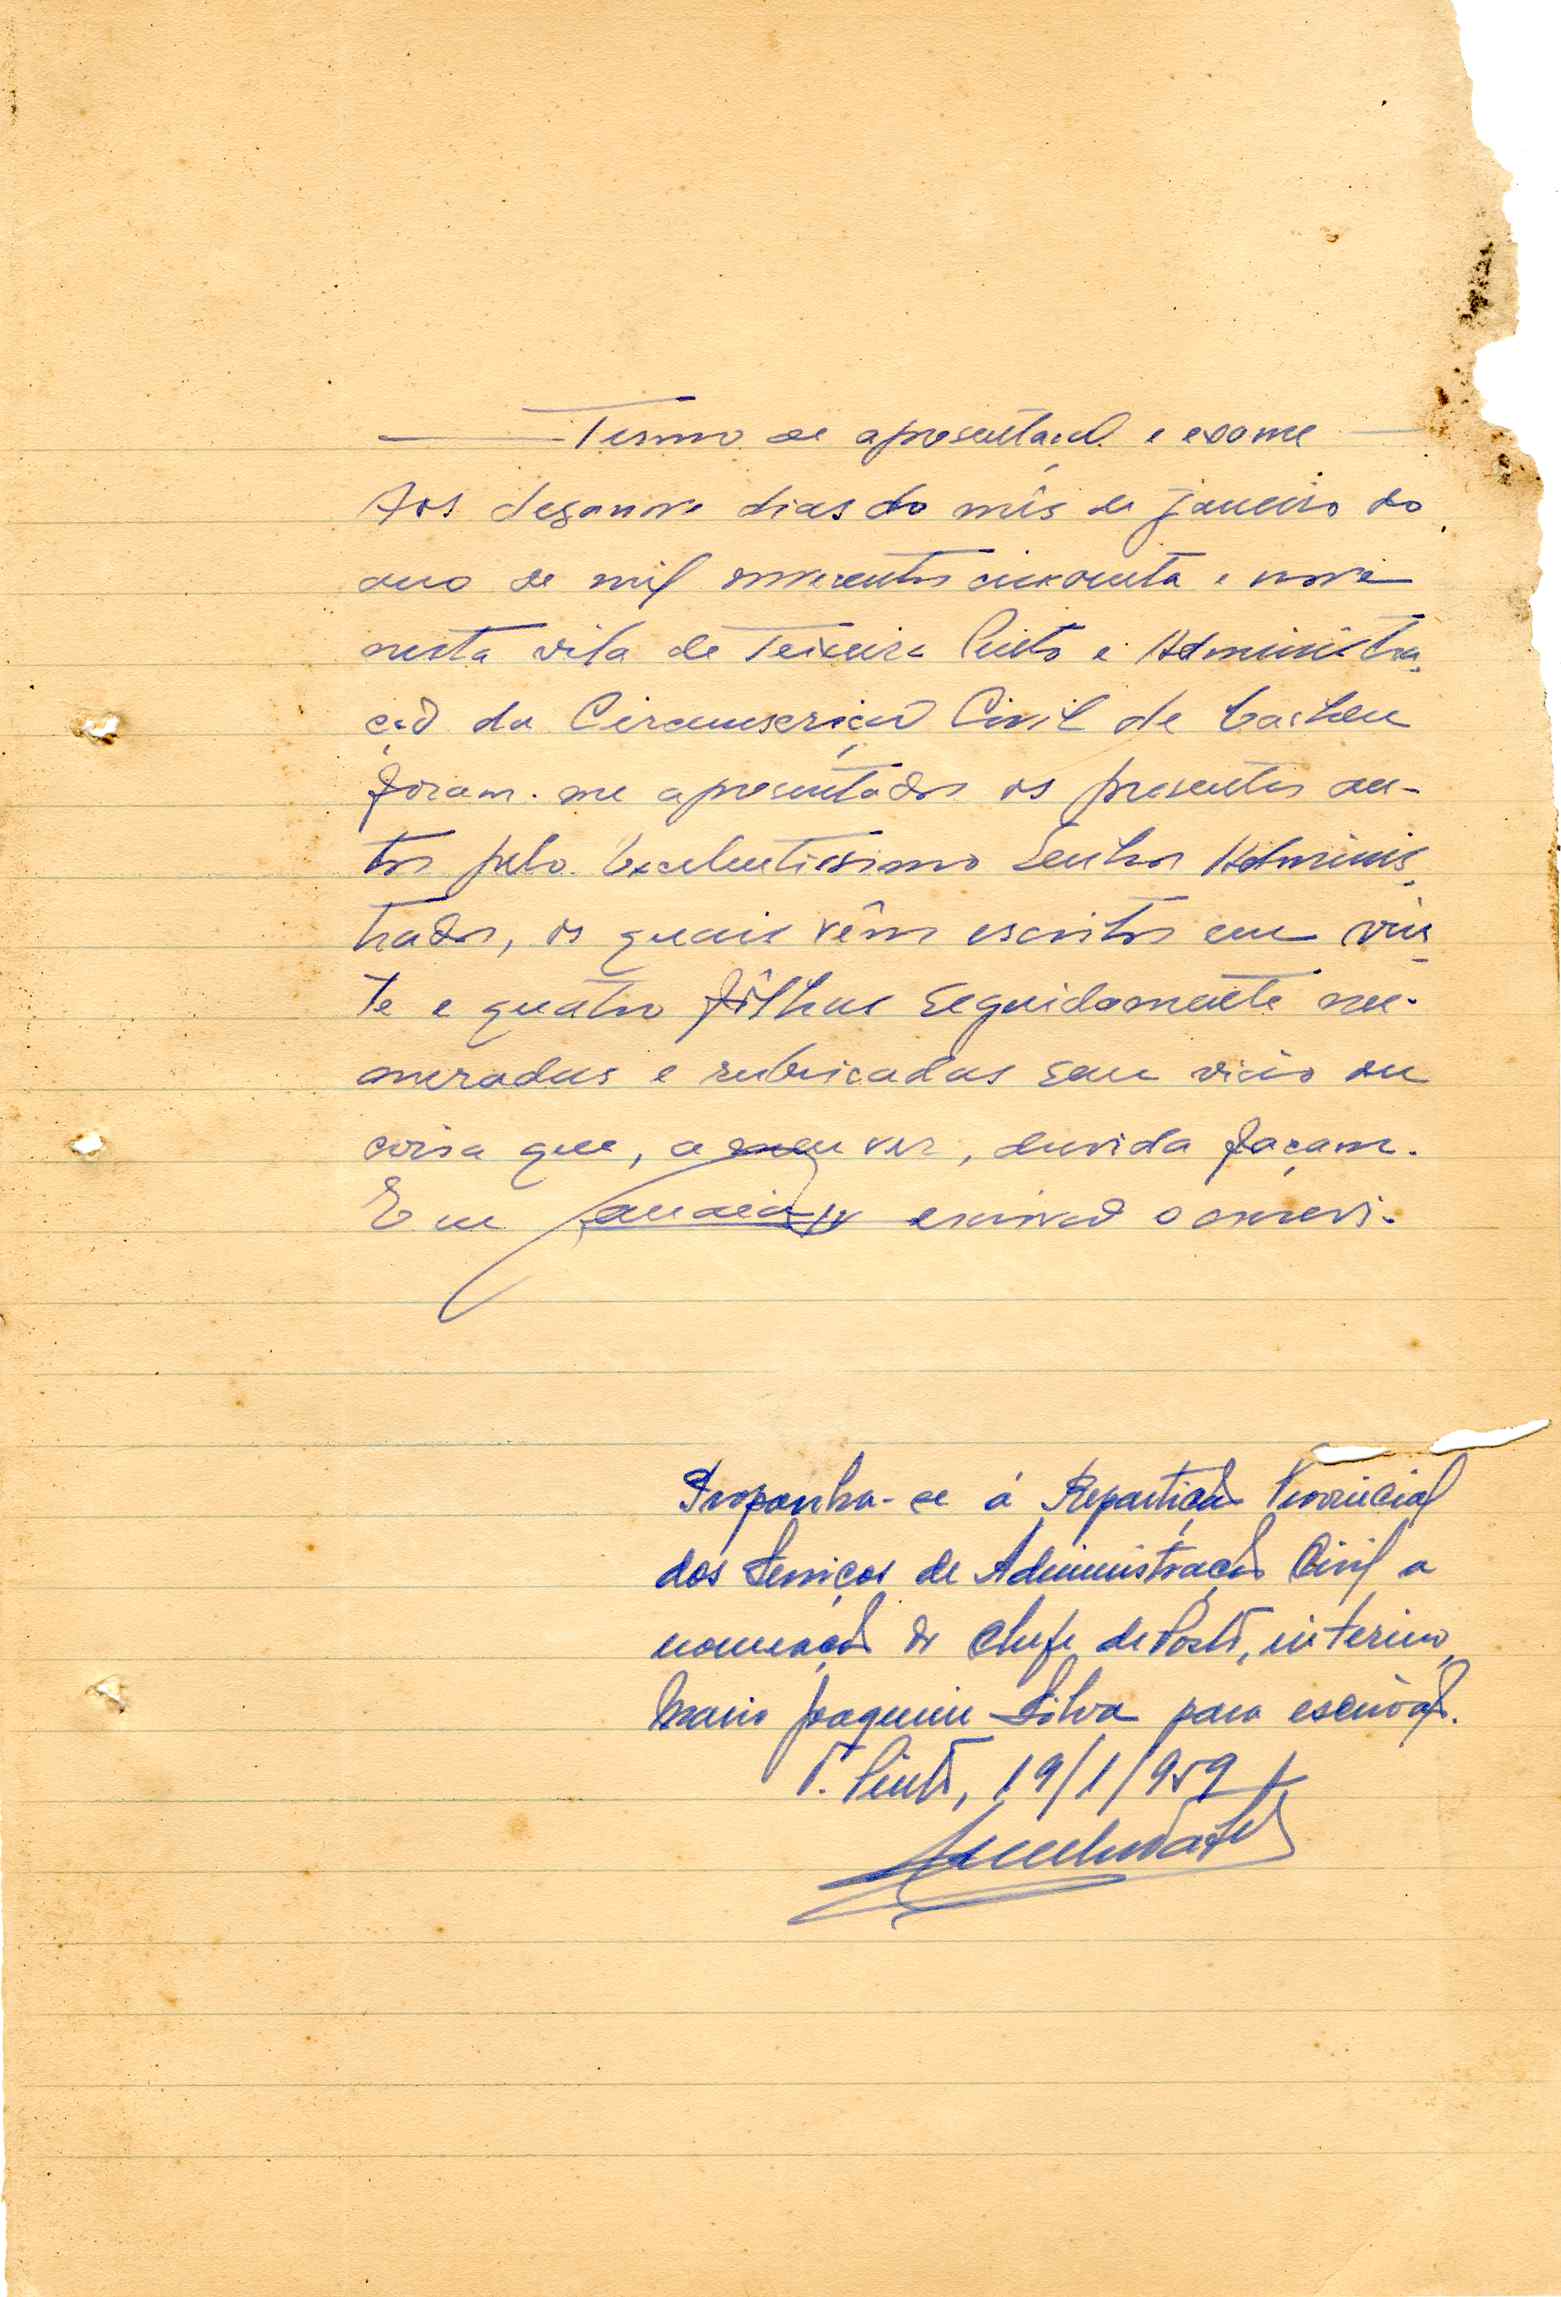 Termo de apresentação e exame
Aos dezanove dias do mês de Janeiro do
ano de mil novecentos cincoenta e nove
nesta vila de Teixeira Pinto e Administra-
ção da Circunscrição Civil de Cacheu
foram-me apresentados os presentes au-
tos pelo Excelentissimo Senhor Adminis-
trador, os quais vêm escritos em vin-
te e quatro fôlhas seguidamente nu-
meradas e rubricadas sem vicio ou
coisa que, a meu ver, duvida façam.
Eu escrivão o escrevi.
Proponha-se á Repartição Provincial
dos Serviços de Administração Civil a
nomeação do Chefe de Posto, interino,
Mario Joaquim Silva para escrivão.
T. Pinto, 19/1/959